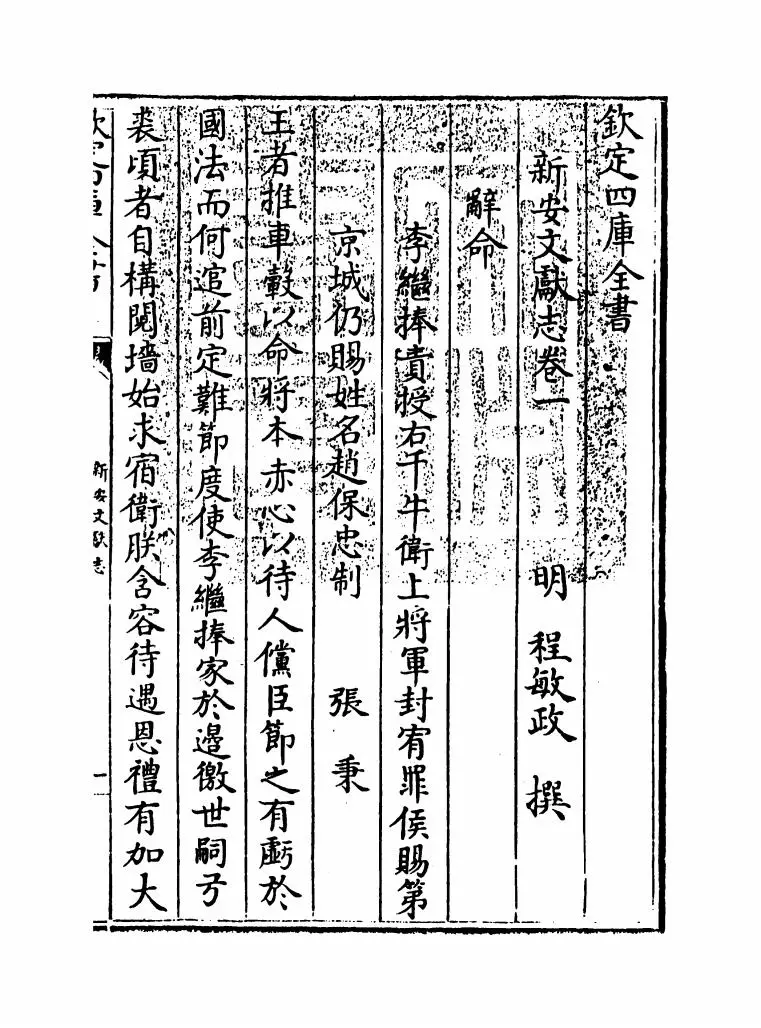 欽定四庫全書
新安文獻志卷一 明 程敏政 撰
辭命
李繼捧責授右千牛衛上將軍封宥罪侯賜第
京城仍賜姓名趙保忠制 張秉
王者推車轂以命將本赤心以待人儻臣節之有虧於
國法而何逭前定難節度使李繼捧家於邉徼世嗣弓
裘頃者自構鬩墻始求宿衛朕含容待遇恩禮有加大
新安文獻志
一